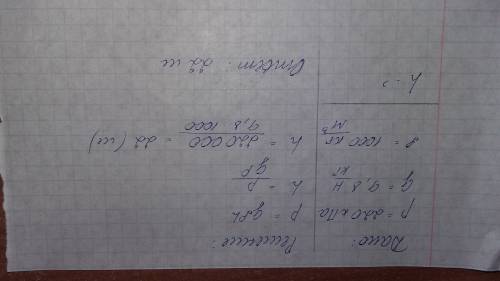 Дано:
p = 220 кПа
g = 9,8 Н/кг
ρ = 1000 кг/м³
h - ?
Решение:
p = gρh
h = p/gρ
h = 220 000/9,8 1000 = 22 (м)
Ответ: 22 м